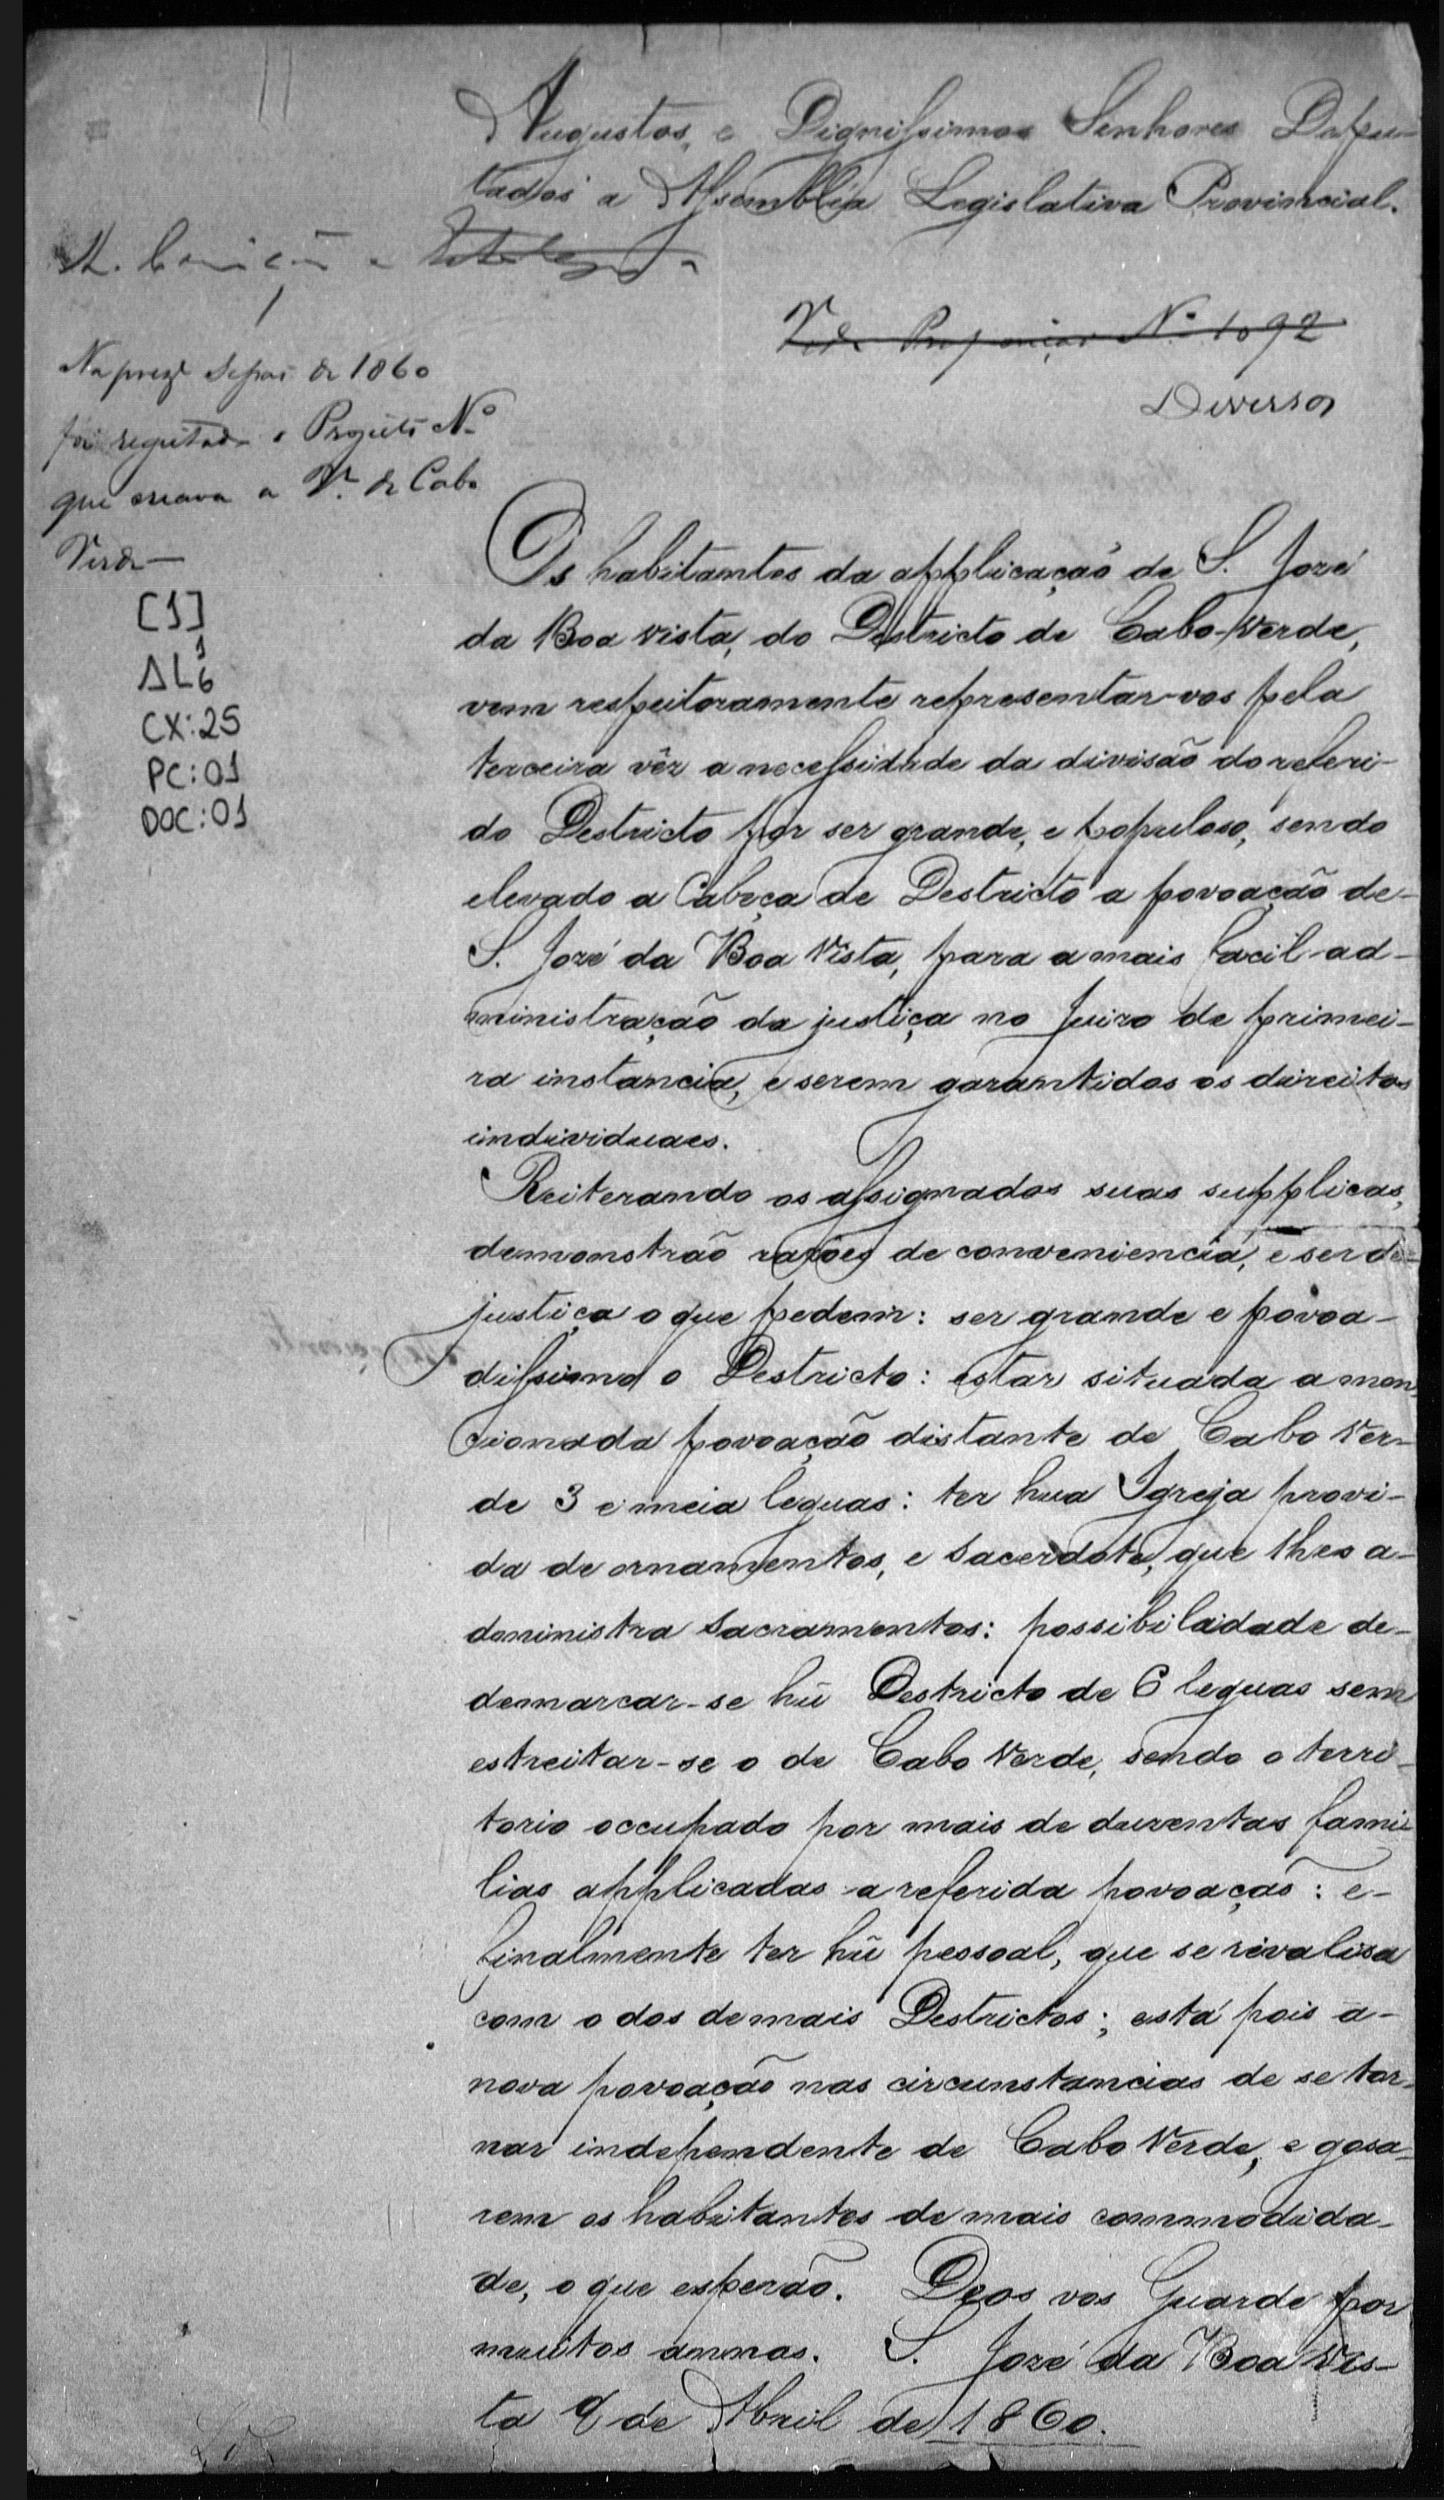 Augustos, e Dignissimos Senhores Depu-
tados a Assemblea Legislativa Provincial.
A. Comição e
Vide Proposiçao Nº 1092
Diversos
Na prezte Sessaõ de 1860
foi regeitado o Projecto Nº
que creava a V. de Cabo
Verde—
[1]
AL 1 6
CX:25
PC:01
DOC:01
Os habitantes da applicaçaõ de S. Jozé
da Boa vista, do Destricto de Cabo-Verde,
vem respeitozamente representar-vos pela
terceira vêz a necessidade da divisão do referi-
do Destricto por ser grande, e populoso, sendo
elevado a Cabeça de Destricto a povoação de-
S. Jozé da Boa Vista, para a mais facil ad-
ministração da justiça no Juizo de primei-
ra instancia, e serem garantidos os direitos
individuaes.
Reiterando os assignados suas supplicas,
demonstrão razões de conveniencia, e ser de
justiça o que pedem: ser grande e povoa-
dissimo o Destricto: estar situada a men
cionada povoação distante de Cabo Ver-
de 3 e meia leguas: ter hua Igreja provi-
da de ornamentos, e Sacerdote, que lhes a-
dministra Sacramentos: possibilidade de-
demarcar-se hũ Destricto de 6 leguas sem
estreitar-se o de Cabo Verde, sendo o terri-
torio occupado por mais de duzentas fami-
lias applicadas a referida povoação: e-
finalmente ter hũ pessoal, que se rivalisa
com o dos demais Destrictos; está pois a-
nova povoação nas circunstancias de se tor-
nar independente de Cabo Verde, e gosa-
rem os habitantes de mais commodida-
de, o que esperão. Deos vos Guarde por
muitos annos. S. Jozé da Boa Vis-
ta 9 de Abril de 1860.